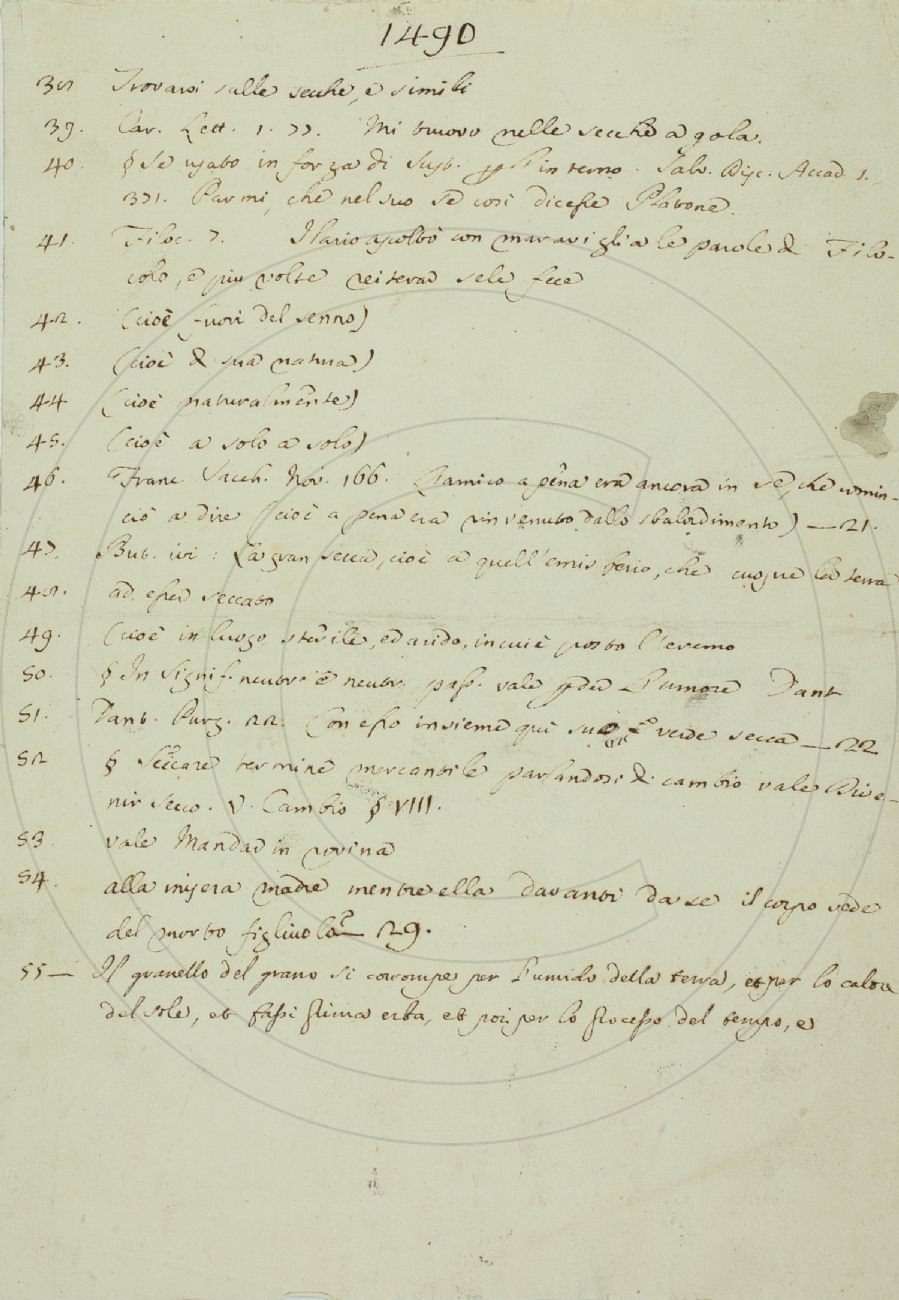 1490
38 Trovarsi sulle secche, e simili
39. Car. Lett. 1. 77. Mi truovo nelle secche a gola.
40. § Se usato in forza di Sust. interno. Salv. Disc. Accad. 1.
371. Parmi, che nel suo sè così dicesse Platone.
41. Filoc. 7. Ilario ascoltò con maraviglia le parole di Filo-
colo, e più volte reiterar sele fece
42. (cioè fuori del senno)
43. (cioè di sua natura)
44 (cioè naturalmente)
45. (cioè a solo a solo)
46. Franc. Sacch. Nov. 166. L'amico a pena era ancora in sè, che comin-
ciò a dire (cioè a pena era rinvenuto dallo sbalordimento) — 21.
47. But. ivi: La gran secca, cioè a quell'emisperio, che cuopre la terra
48. ad esser seccato
49. (cioè in luogo sterile, ed arido, in cui è posto l'eremo
50. § In signif. neutr. e neutr. pass. vale pder l'umore Dant
51. Dant. Purg. 22. Con esso insieme quì suo verde secca — 22
52 § Seccare termine mercantile parlandosi di cambio vale Dive-
nir secco. V. Cambio § VIII.
53. vale Mandar in rovina
54. alla misera madre mentre ella davanti da se il corpo vede
del morto figliuolo — 29.
55 — Il granello del grano si corrompe per l'umido della terra, et per lo calor
del sole, et fassi prima erba, et poi per lo processo del tempo, e